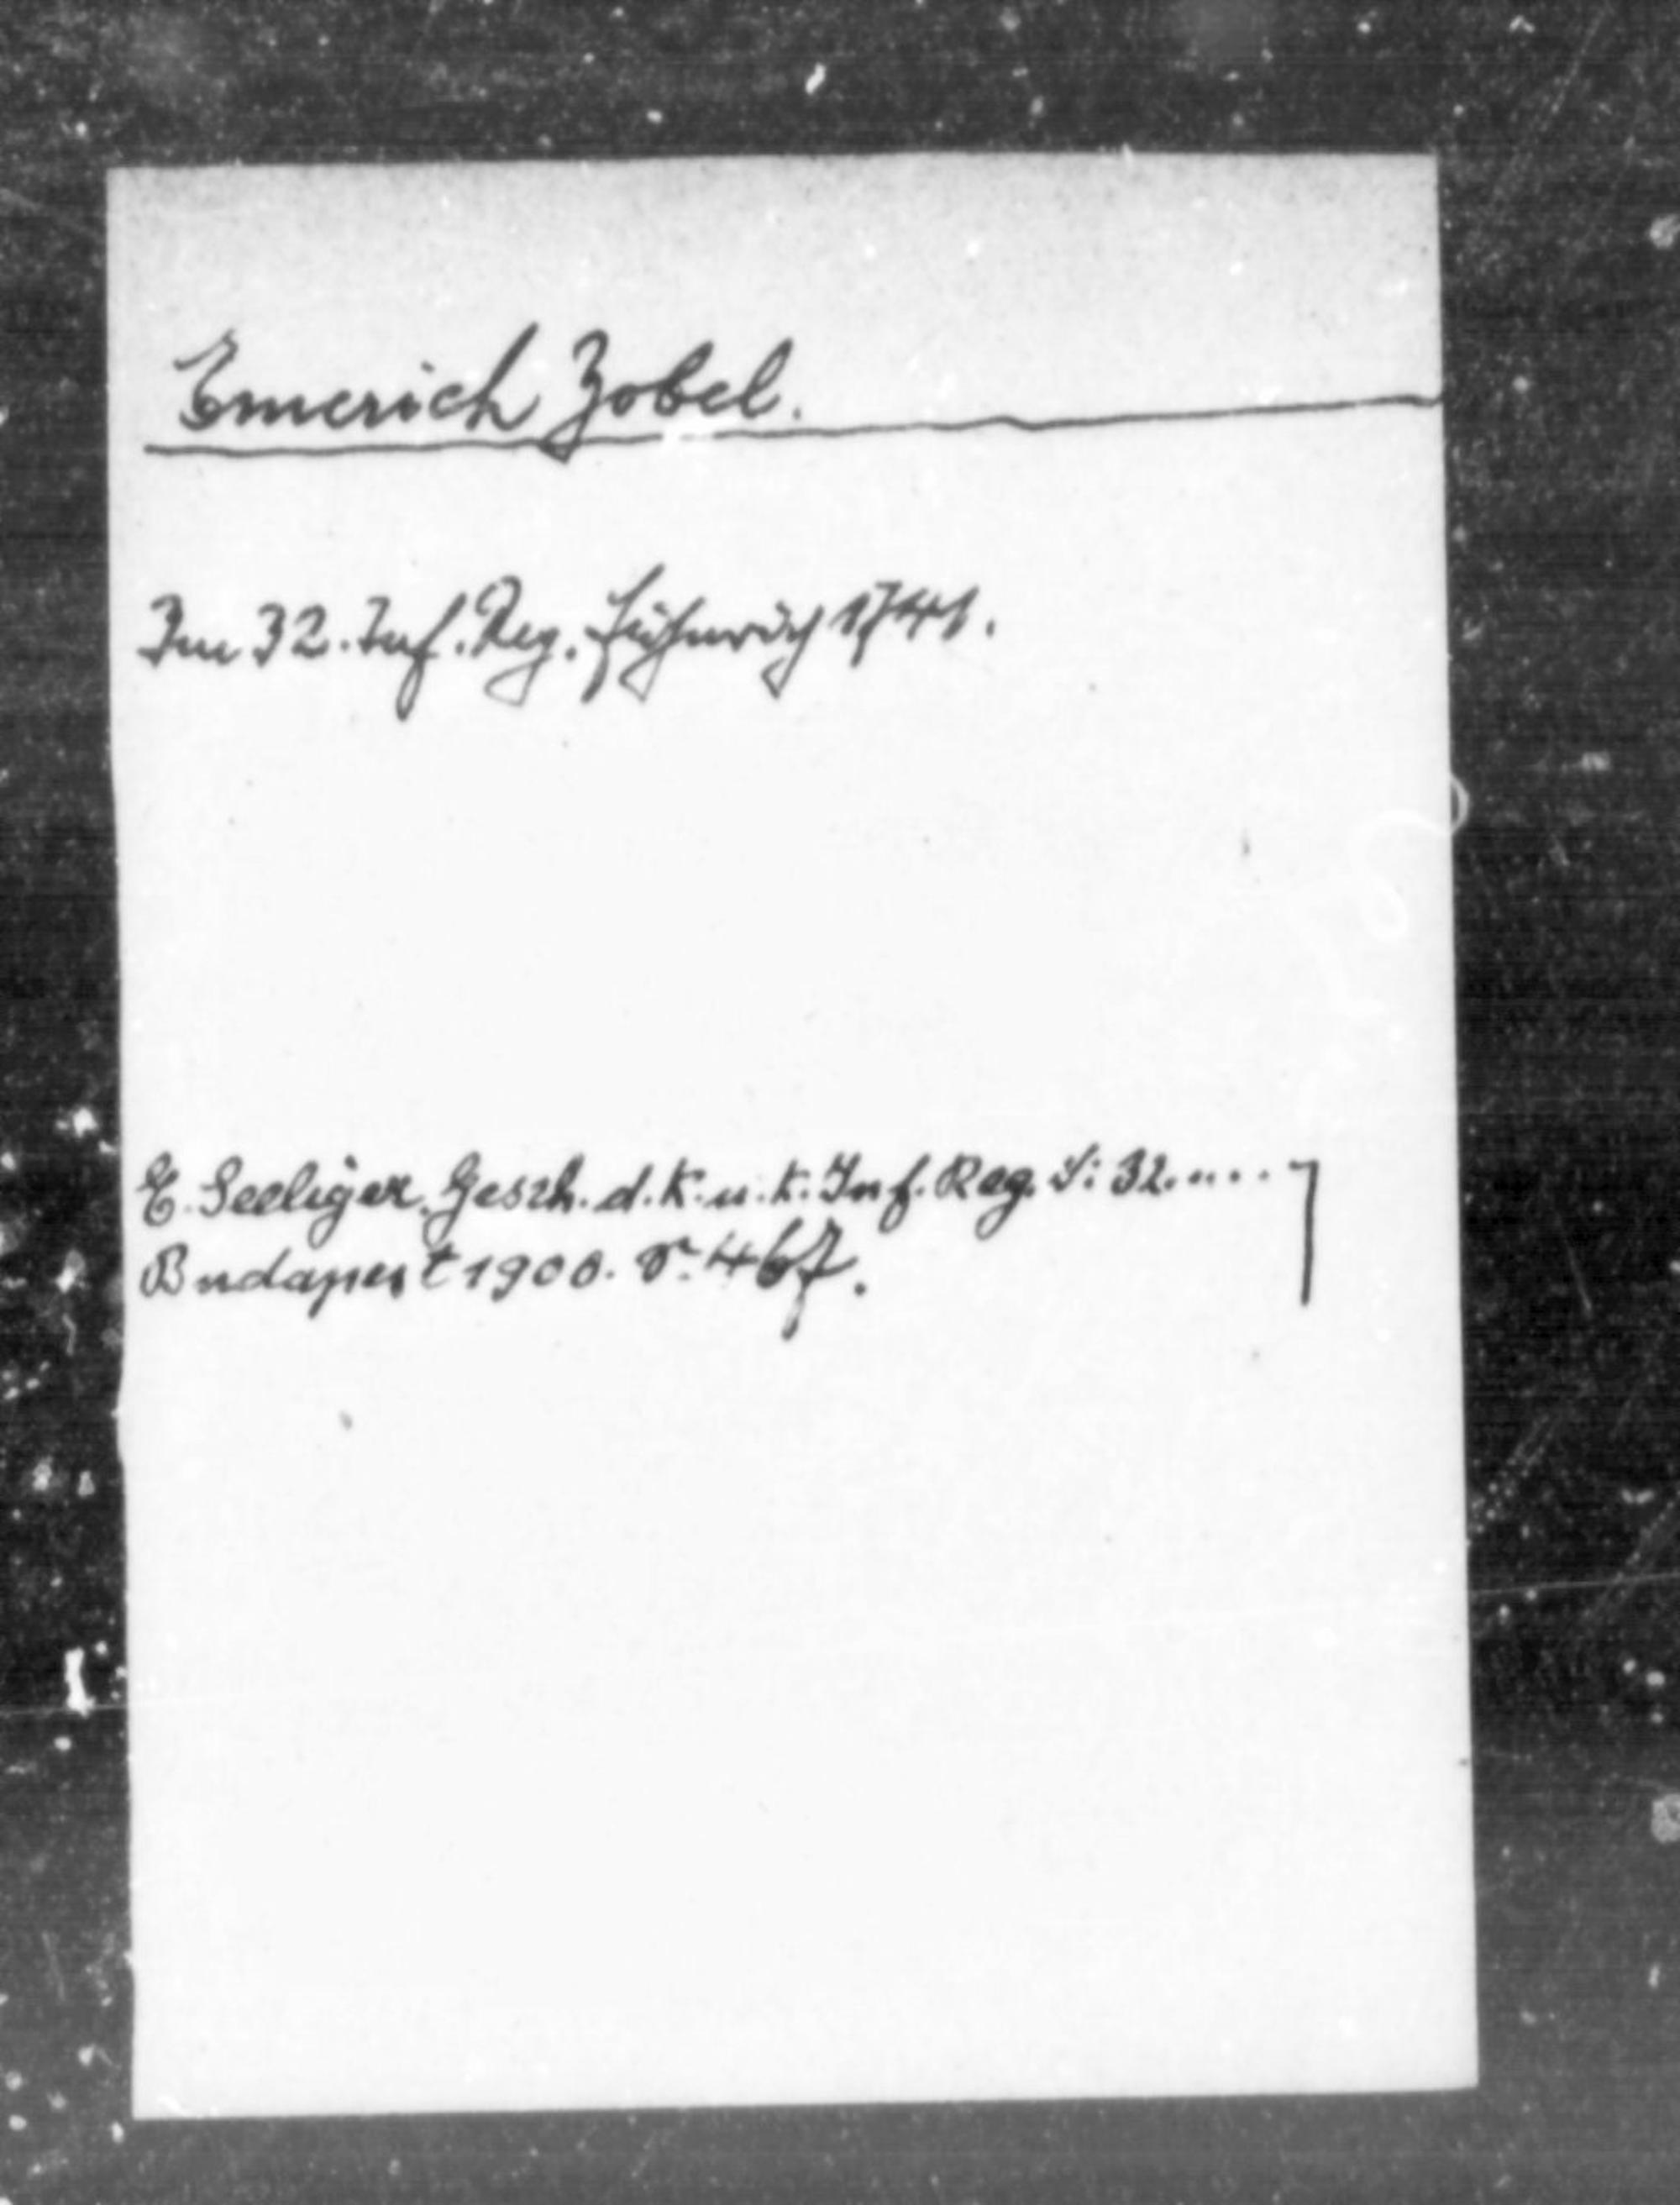 Emerich Zobel.
Im 32. Inf. Reg. Fähnrich 1741.
E. Seeliger, Gesch. d. k. u. k. Inf. Reg. 32....
Budapest 1900. S. 467.